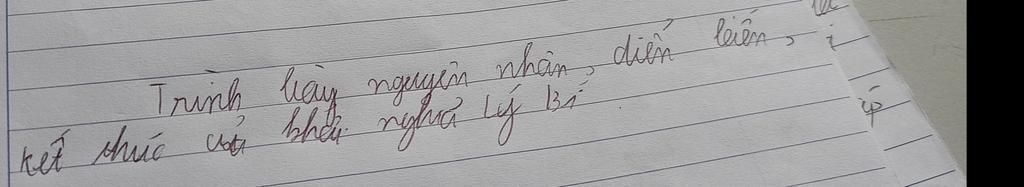 Trình bày nguyên nhân, diễn biến,
kết thúc của khởi nghĩa Lý Bí